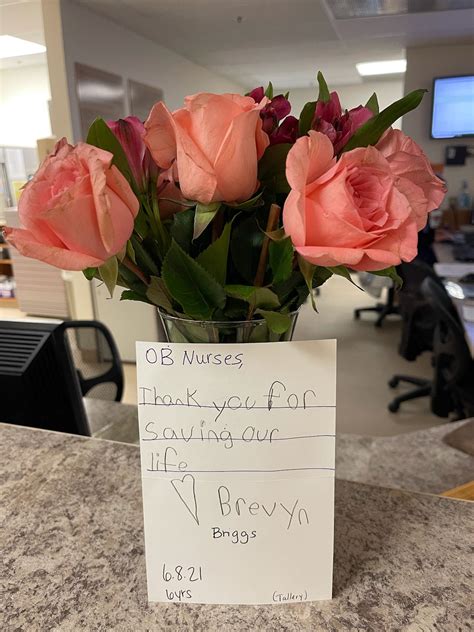 OB Nurses,
Thank you for
saving our
life
♡ Brevyn
Briggs
6.8.21
6yrs
(Tallery)